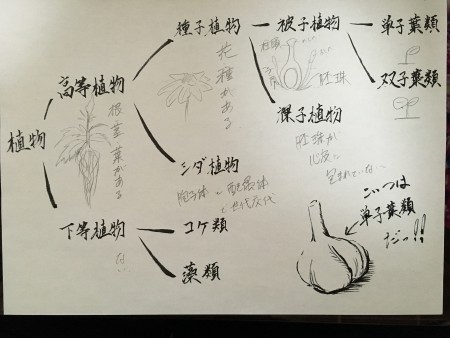 植物
高等植物
根茎葉がある
下等植物
ない
種子植物
花種がある
シダ植物
胞子体と配偶体
で世代交代
コケ類
藻類
被子植物
柱頭
子房
胚珠
裸子植物
胚珠が
心皮に
包まれていない
単子葉類
双子葉類
こいつは
単子葉類
だっ!!